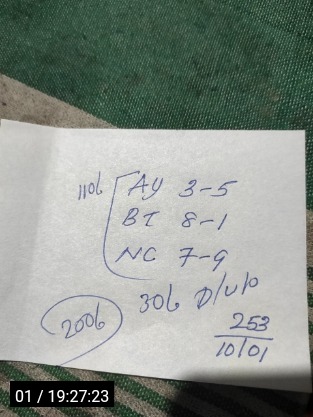 110b AY 3-5
BT 8-1
NC 7-9
30b D/u/o
200b
253
10/01
01 / 19:27:23